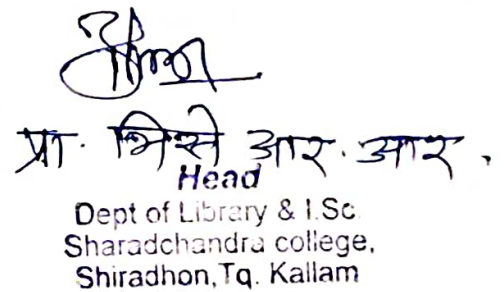 प्रा. भिसे आर. आर.
Head
Dept of Library & I.Sc.
Sharadchandra college,
Shiradhon, Tq. Kallam